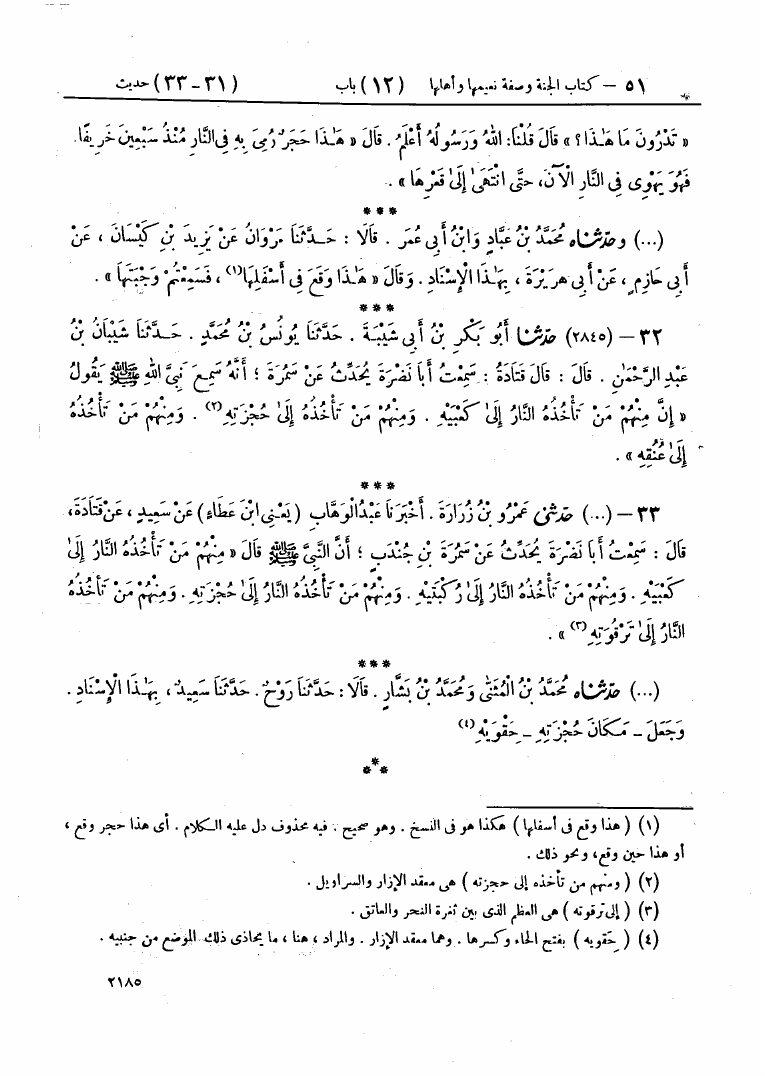 ٥١ – كتاب الجنة وصفة نعيمها وأهلها (١٢) باب (٣١-٣٣) حديث
« تَدْرُونَ مَا هَـٰذَا؟ » قَالَ قُلْنَا: اللهُ وَرَسُولُهُ أَعْلَمُ. قَالَ « هَـٰذَا حَجَرٌ رُمِيَ بِهِ فِي النَّارِ مُنْذُ سَبْعِينَ خَرِيفًا.
فَهُوَ يَهْوِى فِي النَّارِ الْآنَ، حَتَّى انْتَهَىٰ إِلَىٰ قَعْرِهَا » .
***
(...) وحدّثناه مُحَمَّدُ بْنُ عَبَّادٍ وَابْنُ أَبِي عُمَرَ . قَالَا : حَدَّثَنَا مَرْوَانُ عَنْ يَزِيدَ بْنِ كَيْسَانَ ، عَنْ
أَبِي حَازِمٍ ، عَنْ أَبِي هُرَيْرَةَ ، بِهَـٰذَا الْإِسْنَادِ. وَقَالَ « هَـٰذَا وَقَعَ فِي أَسْفَلِهَا(١) ، فَسَمِعْتُمْ وَجْبَتَهَا » .
***
٣٢ – (٢٨٤٥) حدّثنا أَبُو بَكْرِ بْنُ أَبِي شَيْبَةَ . حَدَّثَنَا يُونُسُ بْنُ مُحَمَّدٍ . حَدَّثَنَا شَيْبَانُ بْنُ
عَبْدِ الرَّحْمَـٰنِ . قَالَ : قَالَ قَتَادَةُ : سَمِعْتُ أَبَا نَضْرَةَ يُحَدِّثُ عَنْ سَمُرَةَ ؛ أَنَّهُ سَمِعَ نَبِيَّ اللهِ ﷺ يَقُولُ
« إِنَّ مِنْهُمْ مَنْ تَأْخُذُهُ النَّارُ إِلَىٰ كَعْبَيْهِ . وَمِنْهُمْ مَنْ تَأْخُذُهُ إِلَىٰ حُجْزَتِهِ(٢) . وَمِنْهُمْ مَنْ تَأْخُذُهُ
إِلَىٰ عُنُقِهِ » .
***
٣٣ – (...) حدّثني عَمْرُو بْنُ زُرَارَةَ . أَخْبَرَنَا عَبْدُ الْوَهَّابِ (يَعْنِي ابْنَ عَطَاءٍ) عَنْ سَعِيدٍ ، عَنْ قَتَادَةَ ،
قَالَ : سَمِعْتُ أَبَا نَضْرَةَ يُحَدِّثُ عَنْ سَمُرَةَ بْنِ جُنْدَبٍ ؛ أَنَّ النَّبِيَّ ﷺ قَالَ « مِنْهُمْ مَنْ تَأْخُذُهُ النَّارُ إِلَىٰ
كَعْبَيْهِ . وَمِنْهُمْ مَنْ تَأْخُذُهُ النَّارُ إِلَىٰ رُكْبَتَيْهِ . وَمِنْهُمْ مَنْ تَأْخُذُهُ النَّارُ إِلَىٰ حُجْزَتِهِ . وَمِنْهُمْ مَنْ تَأْخُذُهُ
النَّارُ إِلَىٰ تَرْقُوَتِهِ(٣) » .
***
(...) حدّثناه مُحَمَّدُ بْنُ الْمُثَنَّىٰ وَمُحَمَّدُ بْنُ بَشَّارٍ . قَالَا : حَدَّثَنَا رَوْحٌ . حَدَّثَنَا سَعِيدٌ ، بِهَـٰذَا الْإِسْنَادِ .
وَجَعَلَ – مَكَانَ حُجْزَتِهِ – حِقْوَيْهِ(٤)
***
(١) ( هذا وقع فى أسفلها ) هكذا هو فى النسخ . وهو صحيح . فيه محذوف دل عليه الكلام . أى هذا حجر وقع ،
أو هذا حين وقع، ونحو ذلك .
(٢) ( ومنهم من تأخذه إلى حجزته ) هى معقد الإزار والسراويل .
(٣) ( إلى ترقوته ) هى العظم الذى بين ثغرة النحر والعاتق .
(٤) ( حَِقويه ) بفتح الحاء وكسرها . وهما معقد الإزار . والمراد ، هنا ، ما يحاذى ذلك الموضع من جنبيه .
٢١٨٥